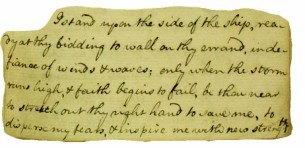 I stand upon the side of the ship, rea-
dy at thy bidding to walk on thy errand, in de-
fiance of winds & waves; only when the storm
runs high, & faith begins to fail, be thou near
to stretch out thy right hand to save me, to
disperse my fears, & inspire me with new strength